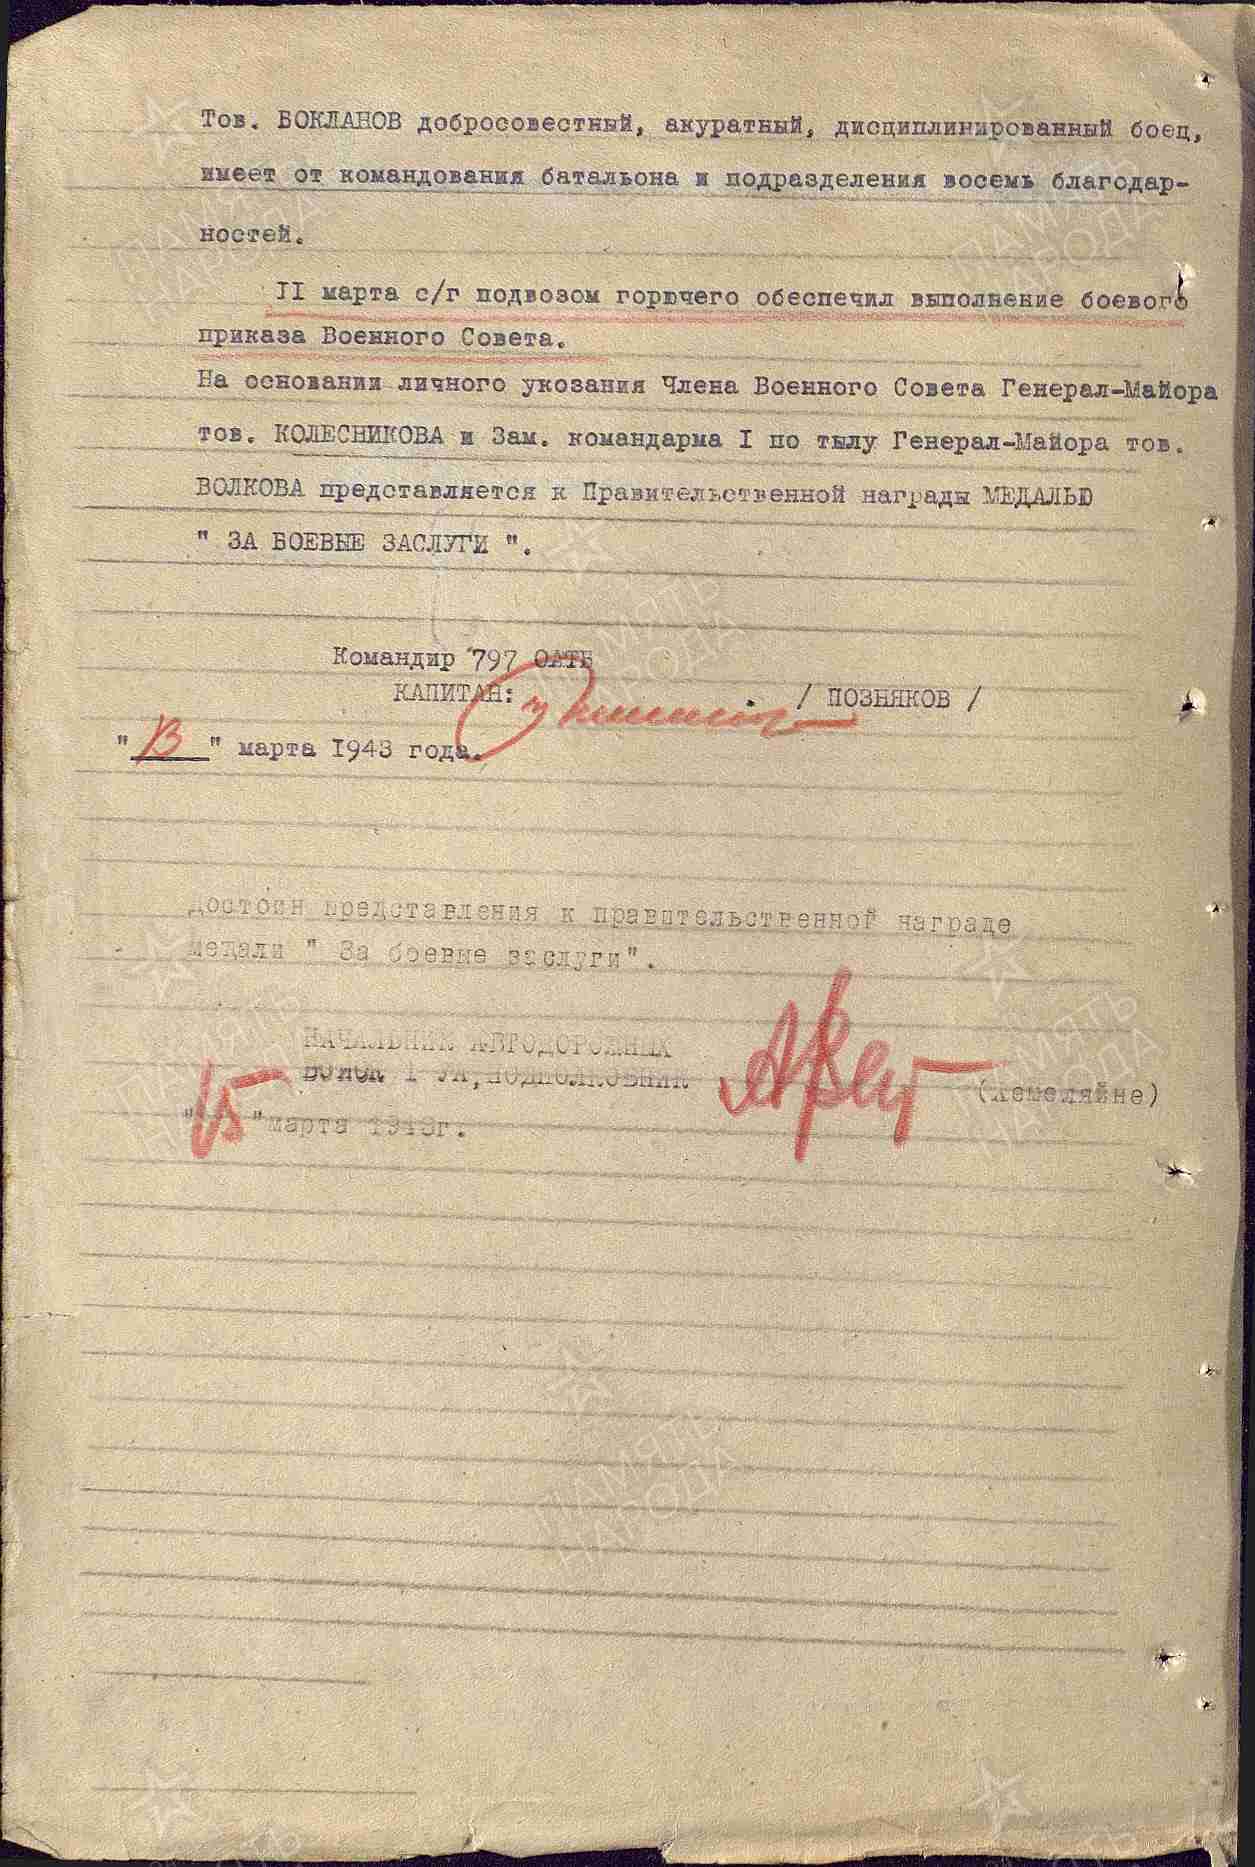 Тов. БОКЛАНОВ добросовестный, акуратный, дисциплинированный боец,
имеет от командования батальона и подразделения восемь благодар-
ностей.
II марта с/г подвозом горючего обеспечил выполнение боевого
приказа Военного Совета.
На основании личного укозания Члена Военного Совета Генерал-Майора
тов. КОЛЕСНИКОВА и Зам. командарма I по тылу Генерал-Майора тов.
ВОЛКОВА представляется к Правительственной награды МЕДАЛЬЮ
" ЗА БОЕВЫЕ ЗАСЛУГИ ".
Командир 797 ОАТБ
КАПИТАН: / ПОЗНЯКОВ /
"13" марта 1943 года.
Достоин представления к правительственной награде
медали " За боевые заслуги".
НАЧАЛЬНИК АВТОДОРОЖНЫХ
ВОЙСК 1 УА, ПОДПОЛКОВНИК
(Хемеляйне)
"15" марта 1943г.
ПАМЯТЬ
НАРОДА